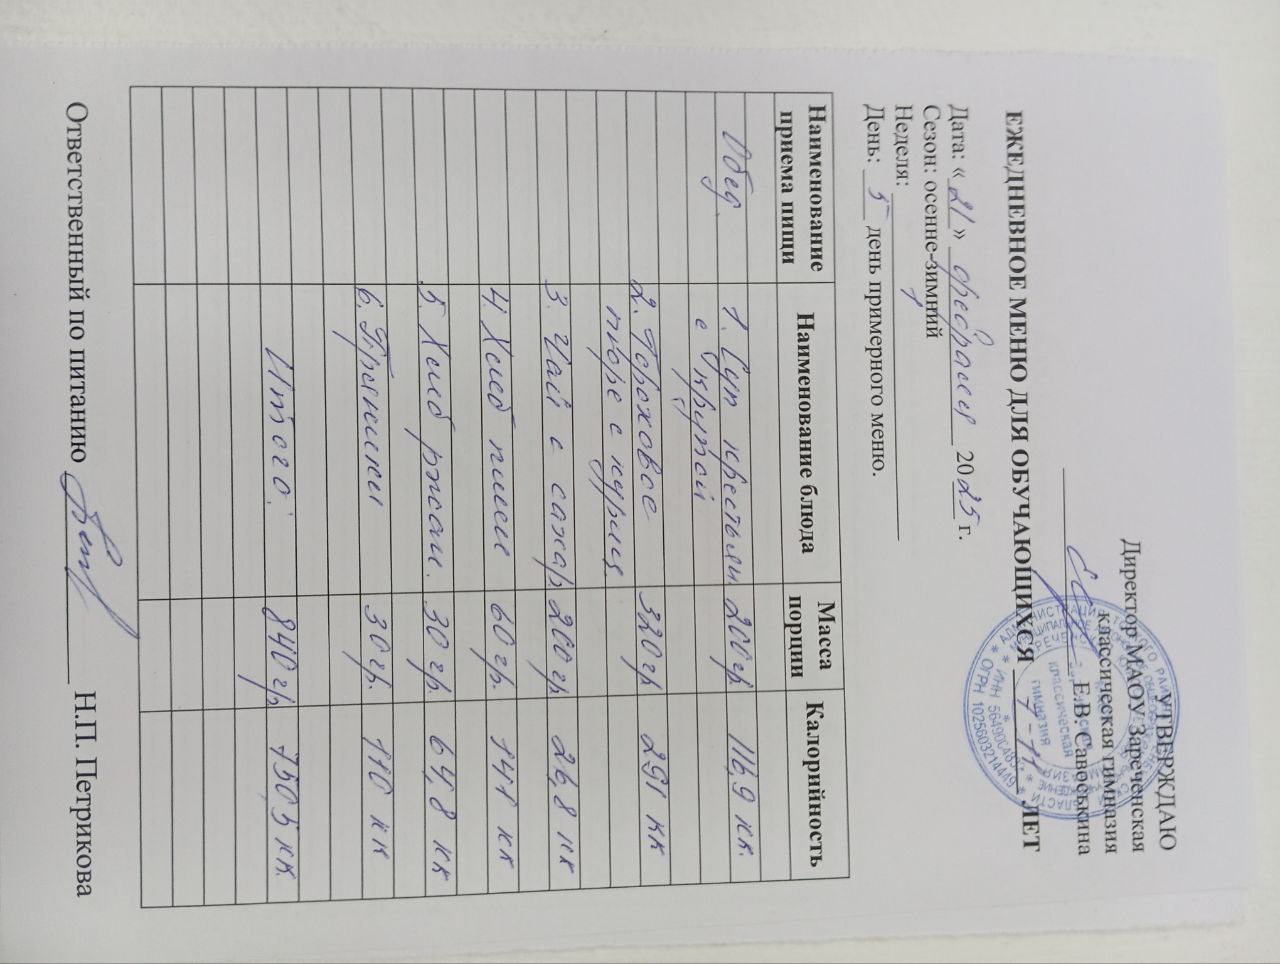 УТВЕРЖДАЮ
Директор МАОУ Зареченская
классическая гимназия
Е.В. Савоськина
ЕЖЕДНЕВНОЕ МЕНЮ ДЛЯ ОБУЧАЮЩИХСЯ 7-11 ЛЕТ
Дата: «21» февраля 2025 г.
Сезон: осенне-зимний
Неделя: 1
День: 5 день примерного меню.
Наименование приема пищи Наименование блюда Масса порции Калорийность
Обед 1. Суп крестьян. 200 гр. 116,9 кк.
с крупой
2. Гороховое 320 гр 291 кк
пюре с куриц.
3. Чай с сахар. 200 гр 26,8 кк
4. Хлеб пшен 60 гр. 141 кк
5. Хлеб ржан. 30 гр. 64,8 кк
6. Гренки 30 гр. 110 кк
Итого: 840 гр. 750,5 кк.
Ответственный по питанию Н.П. Петрикова
ОГРН 1025603214449
классическая
гимназия